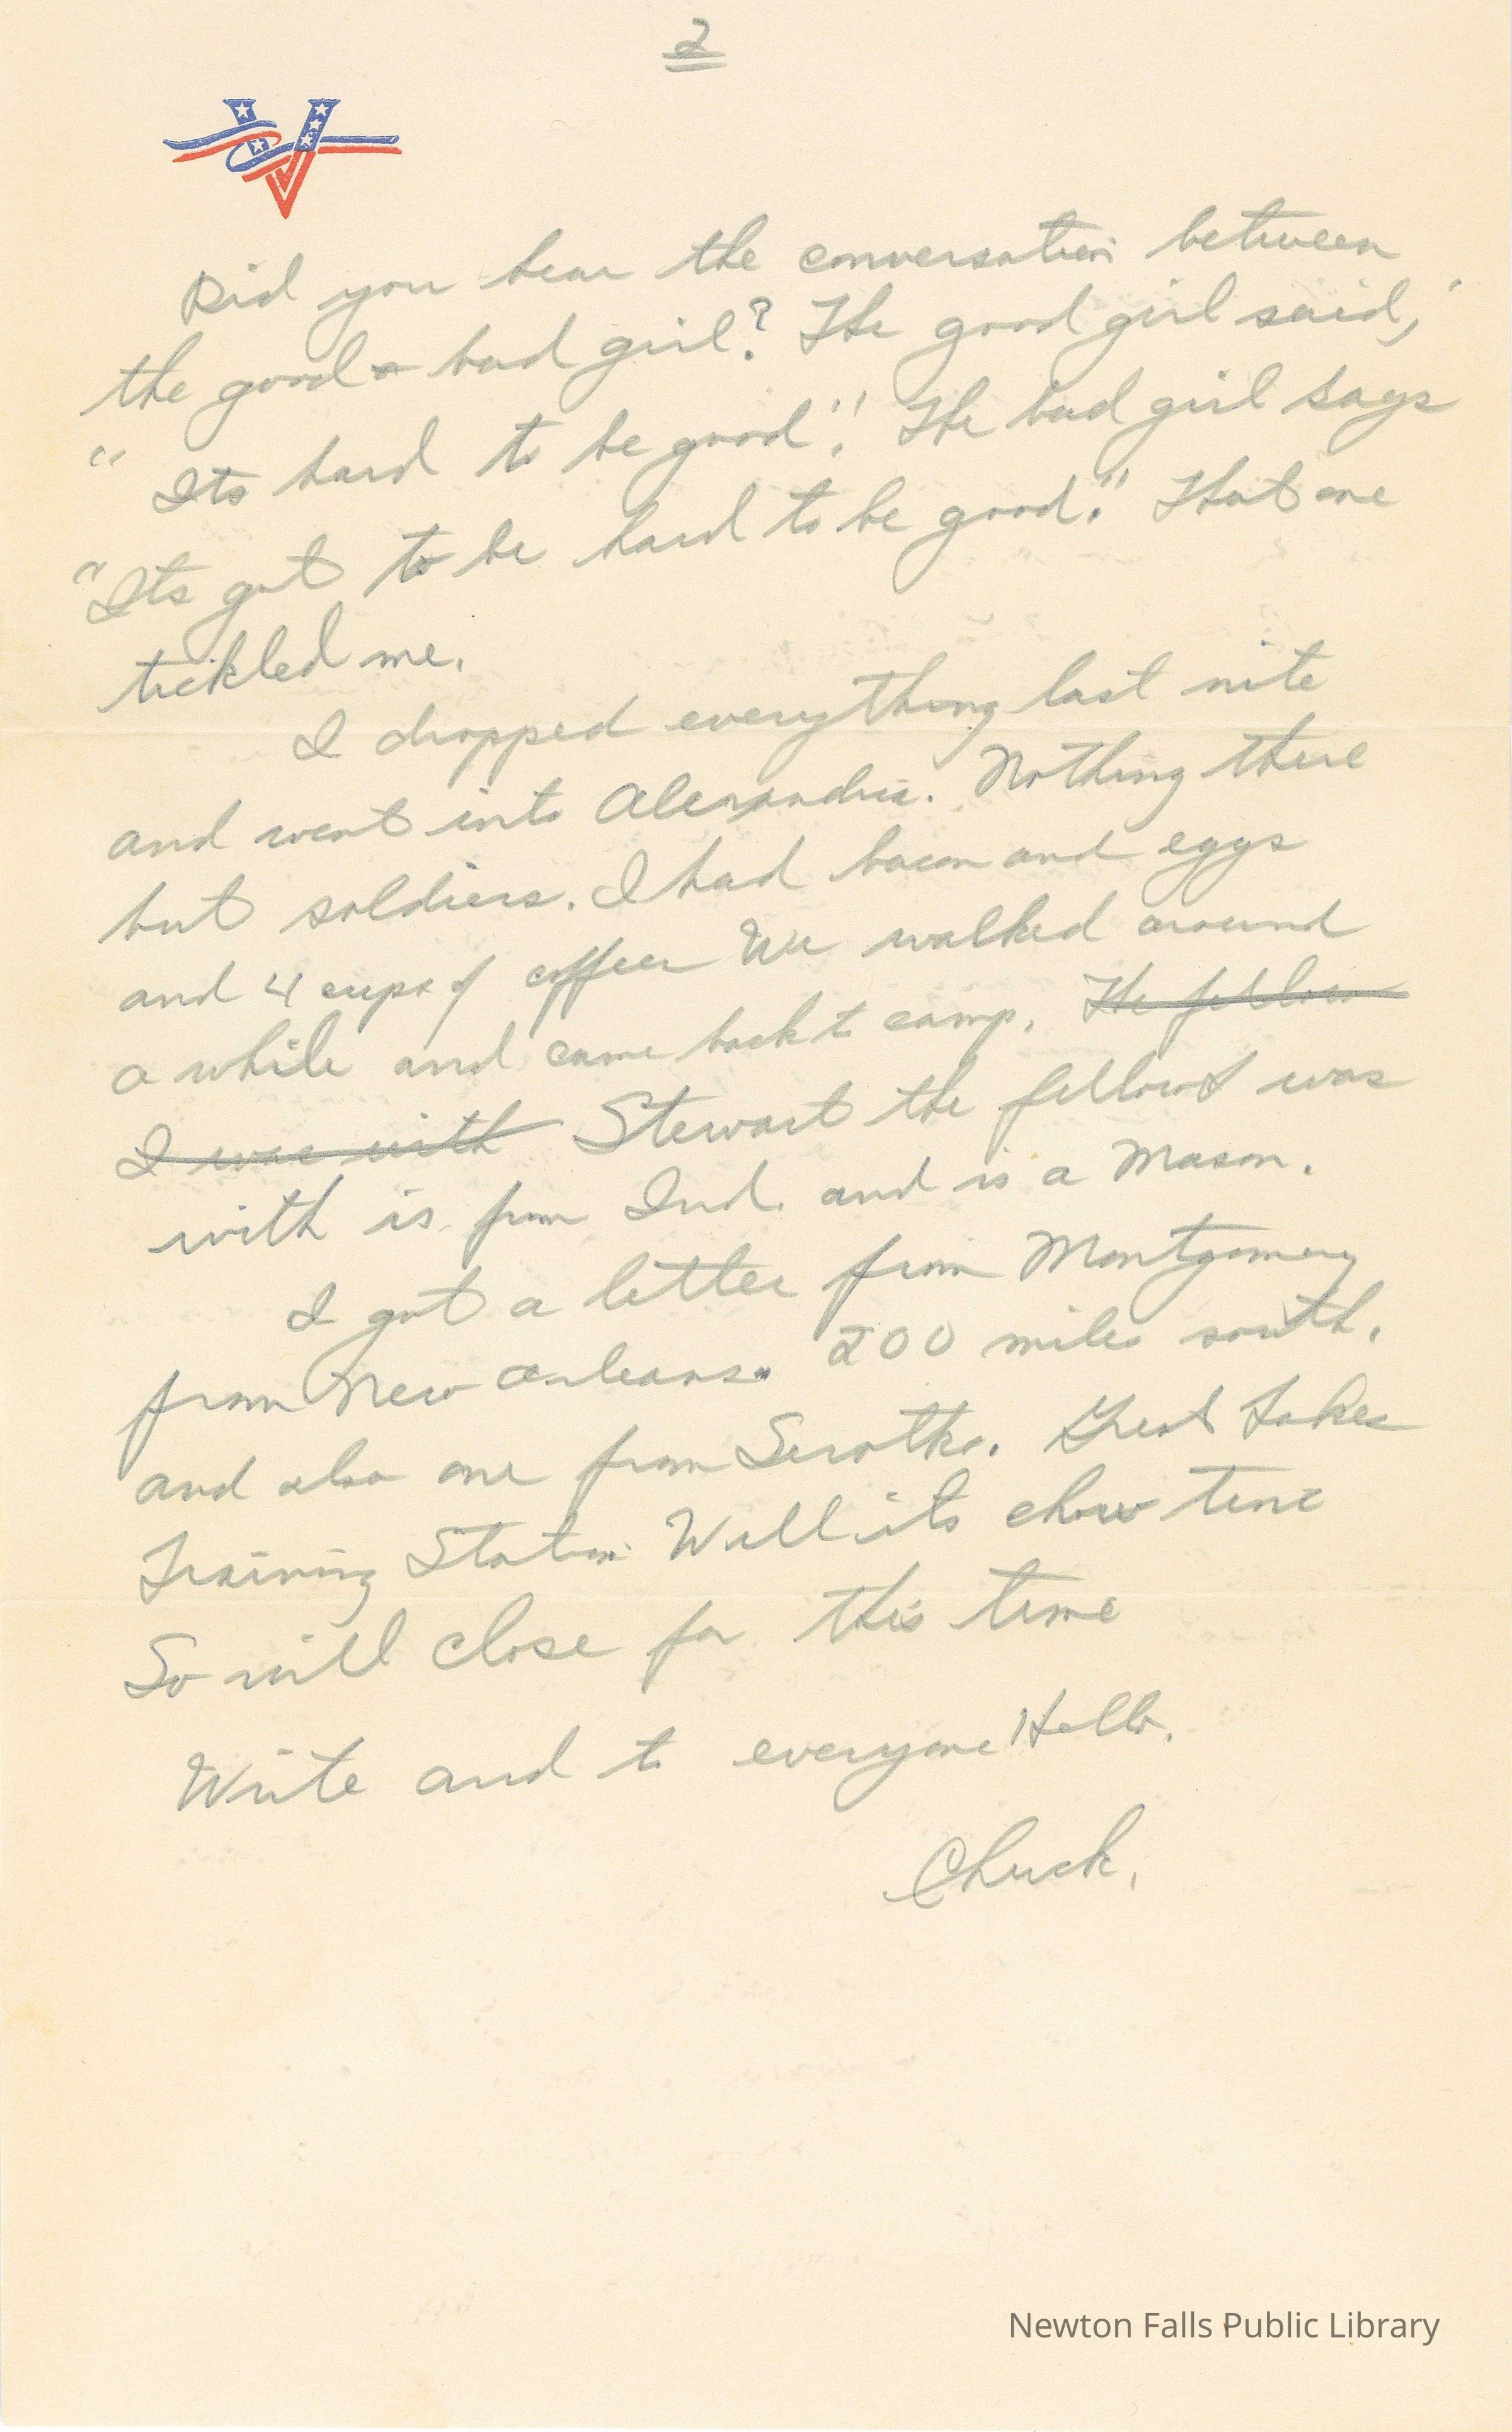 2
Did you hear the conversation between
the good & bad girl? The good girl said,
"Its hard to be good". The bad girl says
"Its got to be hard to be good." That one
tickled me.
I dropped everything last nite
and went into Alexandria. Nothing there
but soldiers. I had bacon and eggs
and 4 cups of coffee We walked around
a while and came back to camp. The fellow
I was with Stewart the fellow I was
with is from Ind. and is a Mason.
I got a letter from Montgomery
from New Orleans. 200 miles south.
and also one from Serotko. Great Lakes
Training Station Well its chow time
So will close for this time
Write and to everyone Hello.
Chuck.
Newton Falls Public Library